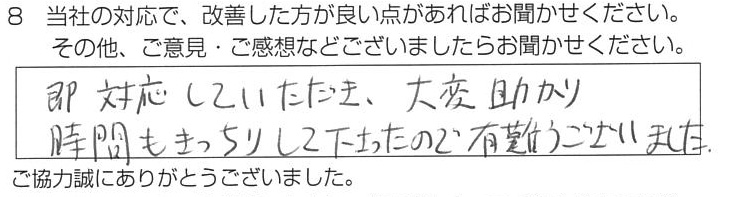 8 当社の対応で、改善した方が良い点があればお聞かせください。
その他、ご意見・ご感想などございましたらお聞かせください。
即対応していただき、大変助かり
時間もきっちりして下さったので有難うございました.
ご協力誠にありがとうございました。